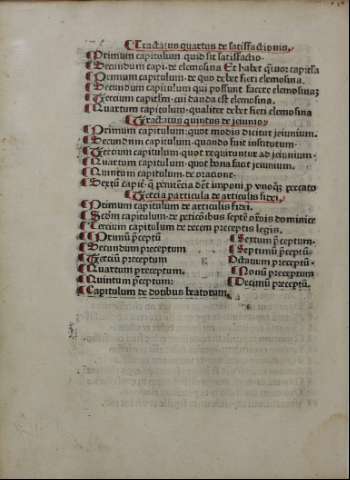 Tractatus quartus de satisfactionis.
Primum capitulum quid sit satisfactio.
Secundum capi. de elemosina Et habet quor capitla
Primum capitulum. de quo debet fieri elemosina.
Secundum capitulum qui possunt facere elemosinaz
Tercium capitlm. cui danda est elemosina.
Quartum capitulum. qualiter debet fieri elemosina
Tractatus quintus de ieiunio.
Primum capitulum. quot modis dicitur ieiunium.
Secundum capitulum. quando fuit institutum.
Tercium capitulum. quot requirūtur ad ieiunium.
Quartum capitulum. quot bona facit ieiunium.
Quintum capitulum de oratione.
Sextū capit. q penitēcia debet imponi p vnoqz peccato
Tercia particula de articulis fidei.
Primum capitulum de articulis fidei.
Scdm capitulum. de peticōibus septē orōis dominice
Tercium capitulum de decem preceptis legis.
Primū pceptū
Secundum preceptum
Terciū preceptum
Quartum preceptum.
Quintum pceptum:
Sextum pceptum.
Septimū pceptū.
Octauum preceptū.
Nonū preceptum
Decimū preceptū.
Capitulum de dotibus beatorum.